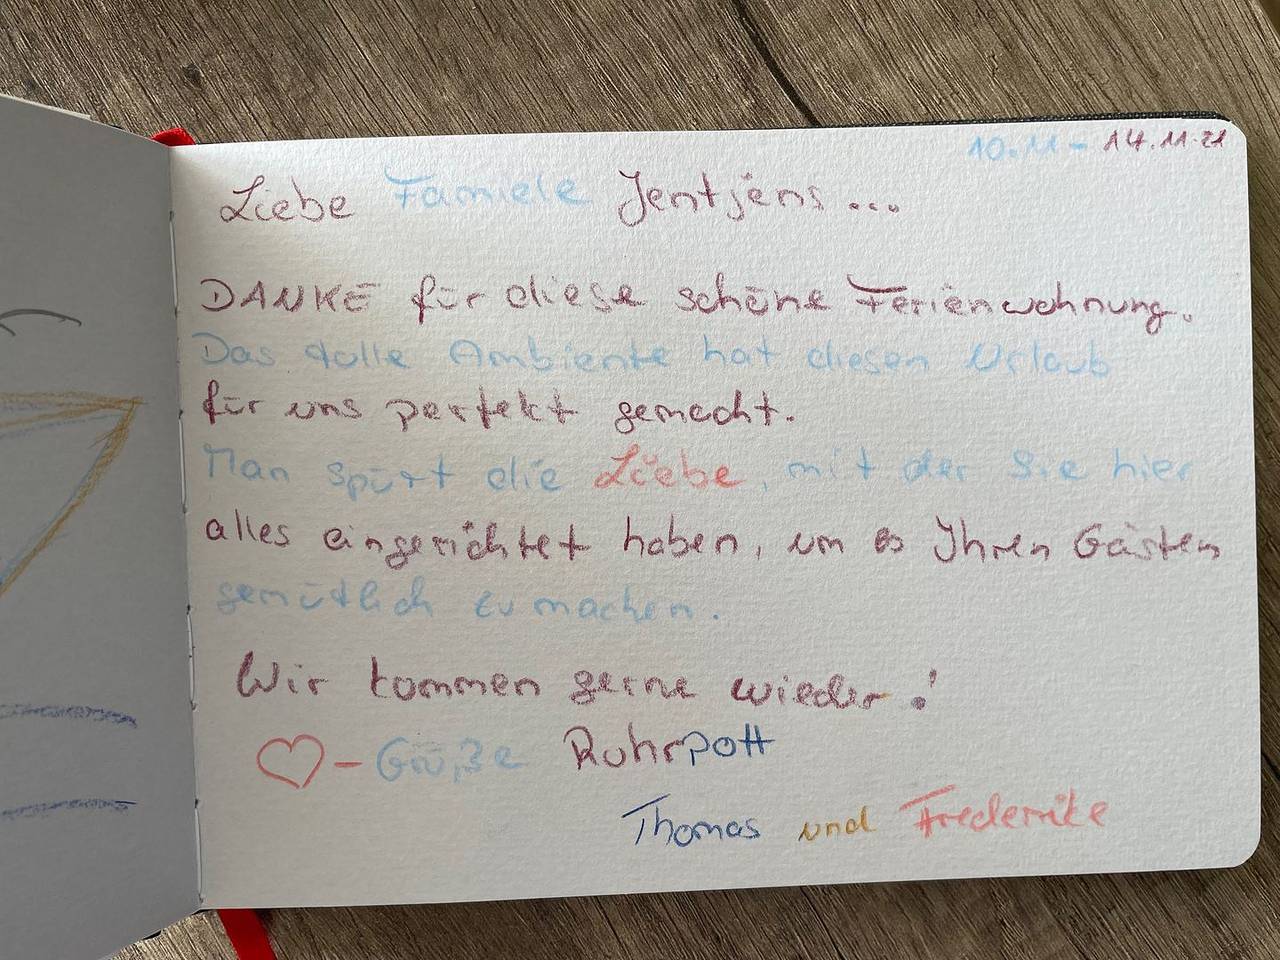 10.11 - 14.11.21
Liebe Famiele Jentjens...
DANKE für diese schöne Ferienwohnung.
Das tolle Ambiente hat diesen Urlaub
für uns perfekt gemacht.
Man spürt die Liebe, mit der Sie hier
alles eingerichtet haben, um es Ihren Gästen
gemütlich zu machen.
Wir kommen gerne wieder!
♡-Grüße Ruhrpott
Thomas und Frederike